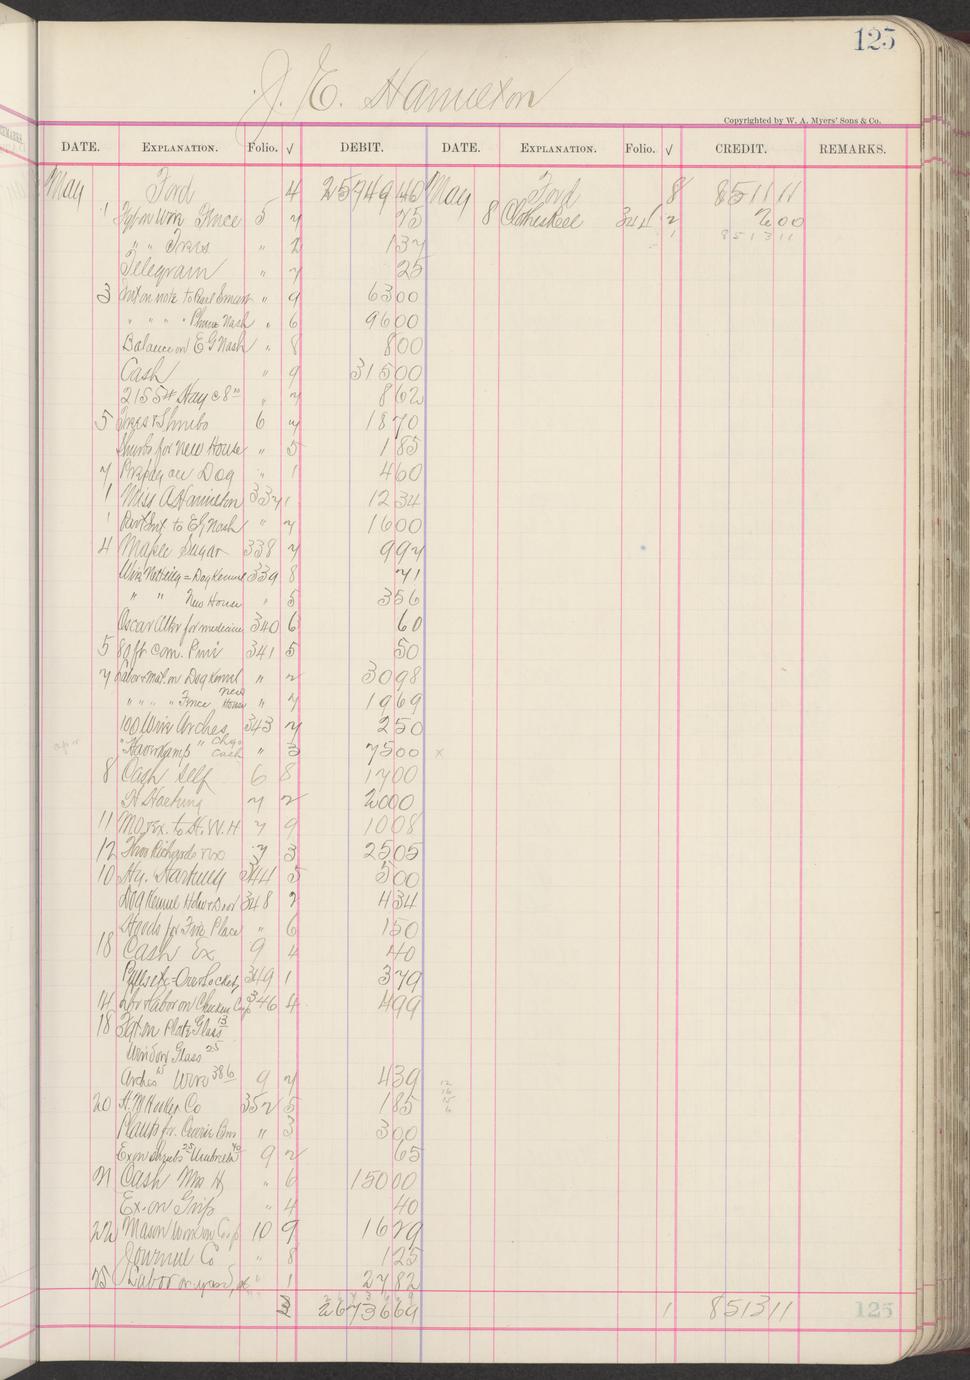 125
J. E. Hamilton
Copyrighted by W. A. Myers' Sons & Co.
DATE. EXPLANATION. Folio. √ DEBIT. DATE. EXPLANATION. Folio. √ CREDIT. REMARKS.
May Ford 4 25749 40 May Ford 8 8511 11
1 Frt on Wire Fence 5 7 75 8 344 2 2 00
" " Trees " 2 1 37 1 8513 11
Telegram " 7 25
3 Int on note to Pearl " 9 63 00
" " " " Nash " 6 96 00
Balance on E G Nash " 8 8 00
Cash " 9 315 00
2155# Hay @ 8 " 7 8 62
5 Trees & Shrubs 6 7 18 70
Shrubs for New House " 5 1 85
7 Prepay on Dog " 1 4 60
1 Miss A Hamilton 337 1 12 34
1 Part Int. to E G Nash " 7 16 00
4 Maple Sugar 338 7 9 97
Wire Netting = Dog Kennel 339 8 71
" " New House " 5 3 56
Oscar for medicine 340 6 60
5 80 ft com. Pine 341 5 50
7 Labor & mat. on Dog Kennel " 2 30 98
" " " " Fence New House " 7 19 69
100 Wire Arches 343 7 2 50
" Cash " 3 75 00 x
8 Cash Self 6 8 17 00
H Hocking 7 2 20 00
11 M.O. & Ex. to H. W. H. 7 9 10 08
12 Richards 7 3 25 05
10 Hy. 344 5 5 00
Dog Kennel & Door 348 2 4 34
for Fire Place " 6 1 50
18 Cash Ex 9 4 40
349 1 3 79
14 Labor on Chicken Coop 346 4 4 99
18 Frt on Plate Glass 13
Window Glass 25
Arches 15 Wire 386 9 7 4 39
20 H. M. Co 352 5 1 85
Plants for " 3 3 00
Ex on Shrubs 25 40 9 2 65
21 Cash Mrs H " 6 150 00
Ex. on Grip " 4 40
22 Mason Work on Coop 10 9 16 29
Journal Co " 8 1 25
25 Labor on yard, " 1 27 82
3 26736 69 1 8513 11
125